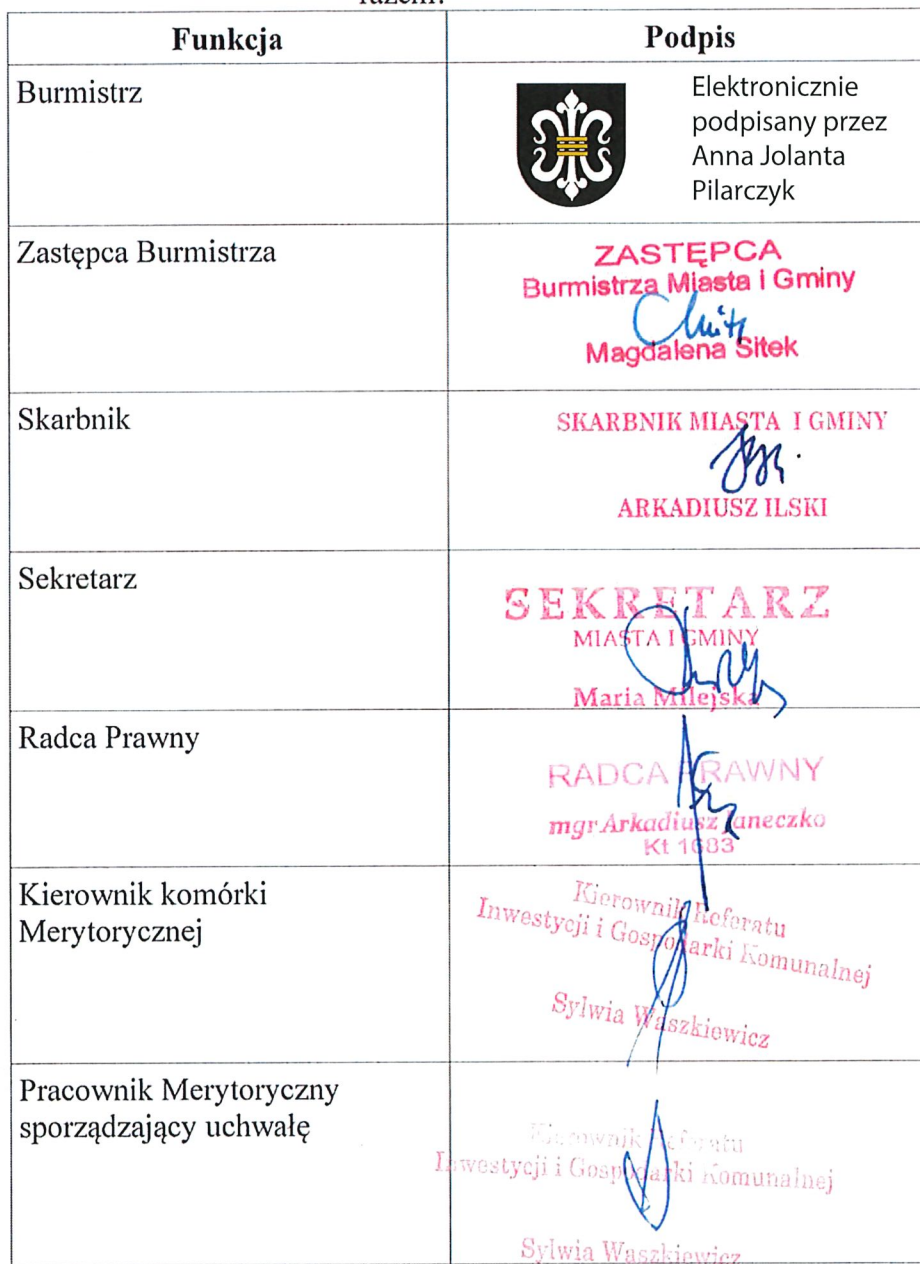 Funkcja
Podpis
Burmistrz
Elektronicznie
podpisany przez
Anna Jolanta
Pilarczyk
Zastępca Burmistrza
ZASTĘPCA
Burmistrza Miasta i Gminy
Magdalena Sitek
Skarbnik
SKARBNIK MIASTA I GMINY
ARKADIUSZ ILSKI
Sekretarz
SEKRETARZ
MIASTA I GMINY
Maria Milejska
Radca Prawny
RADCA PRAWNY
mgr Arkadiusz Janeczko
Kt 1683
Kierownik komórki
Merytorycznej
Kierownik Referatu
Inwestycji i Gospodarki Komunalnej
Sylwia Waszkiewicz
Pracownik Merytoryczny
sporządzający uchwałę
Kierownik Referatu
Inwestycji i Gospodarki Komunalnej
Sylwia Waszkiewicz